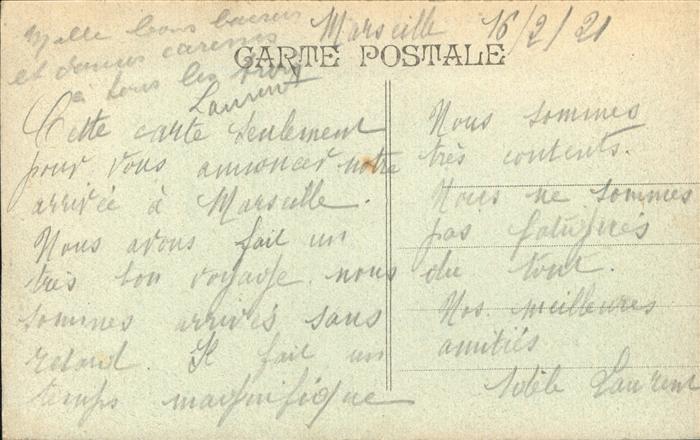 Marseille 16/2/21
Mille bons baisers
et douces caresses
à tous les trois
Laurent
CARTE POSTALE
Cette carte seulement
pour vous annoncer notre
arrivée à Marseille.
Nous avons fait un
très bon voyage. nous
sommes arrivés sans
retard. Il fait un
temps magnifique
Nous sommes
très contents.
Nous ne sommes
pas fatigués
du tout.
Nos meilleures
amitiés
Adèle Laurent